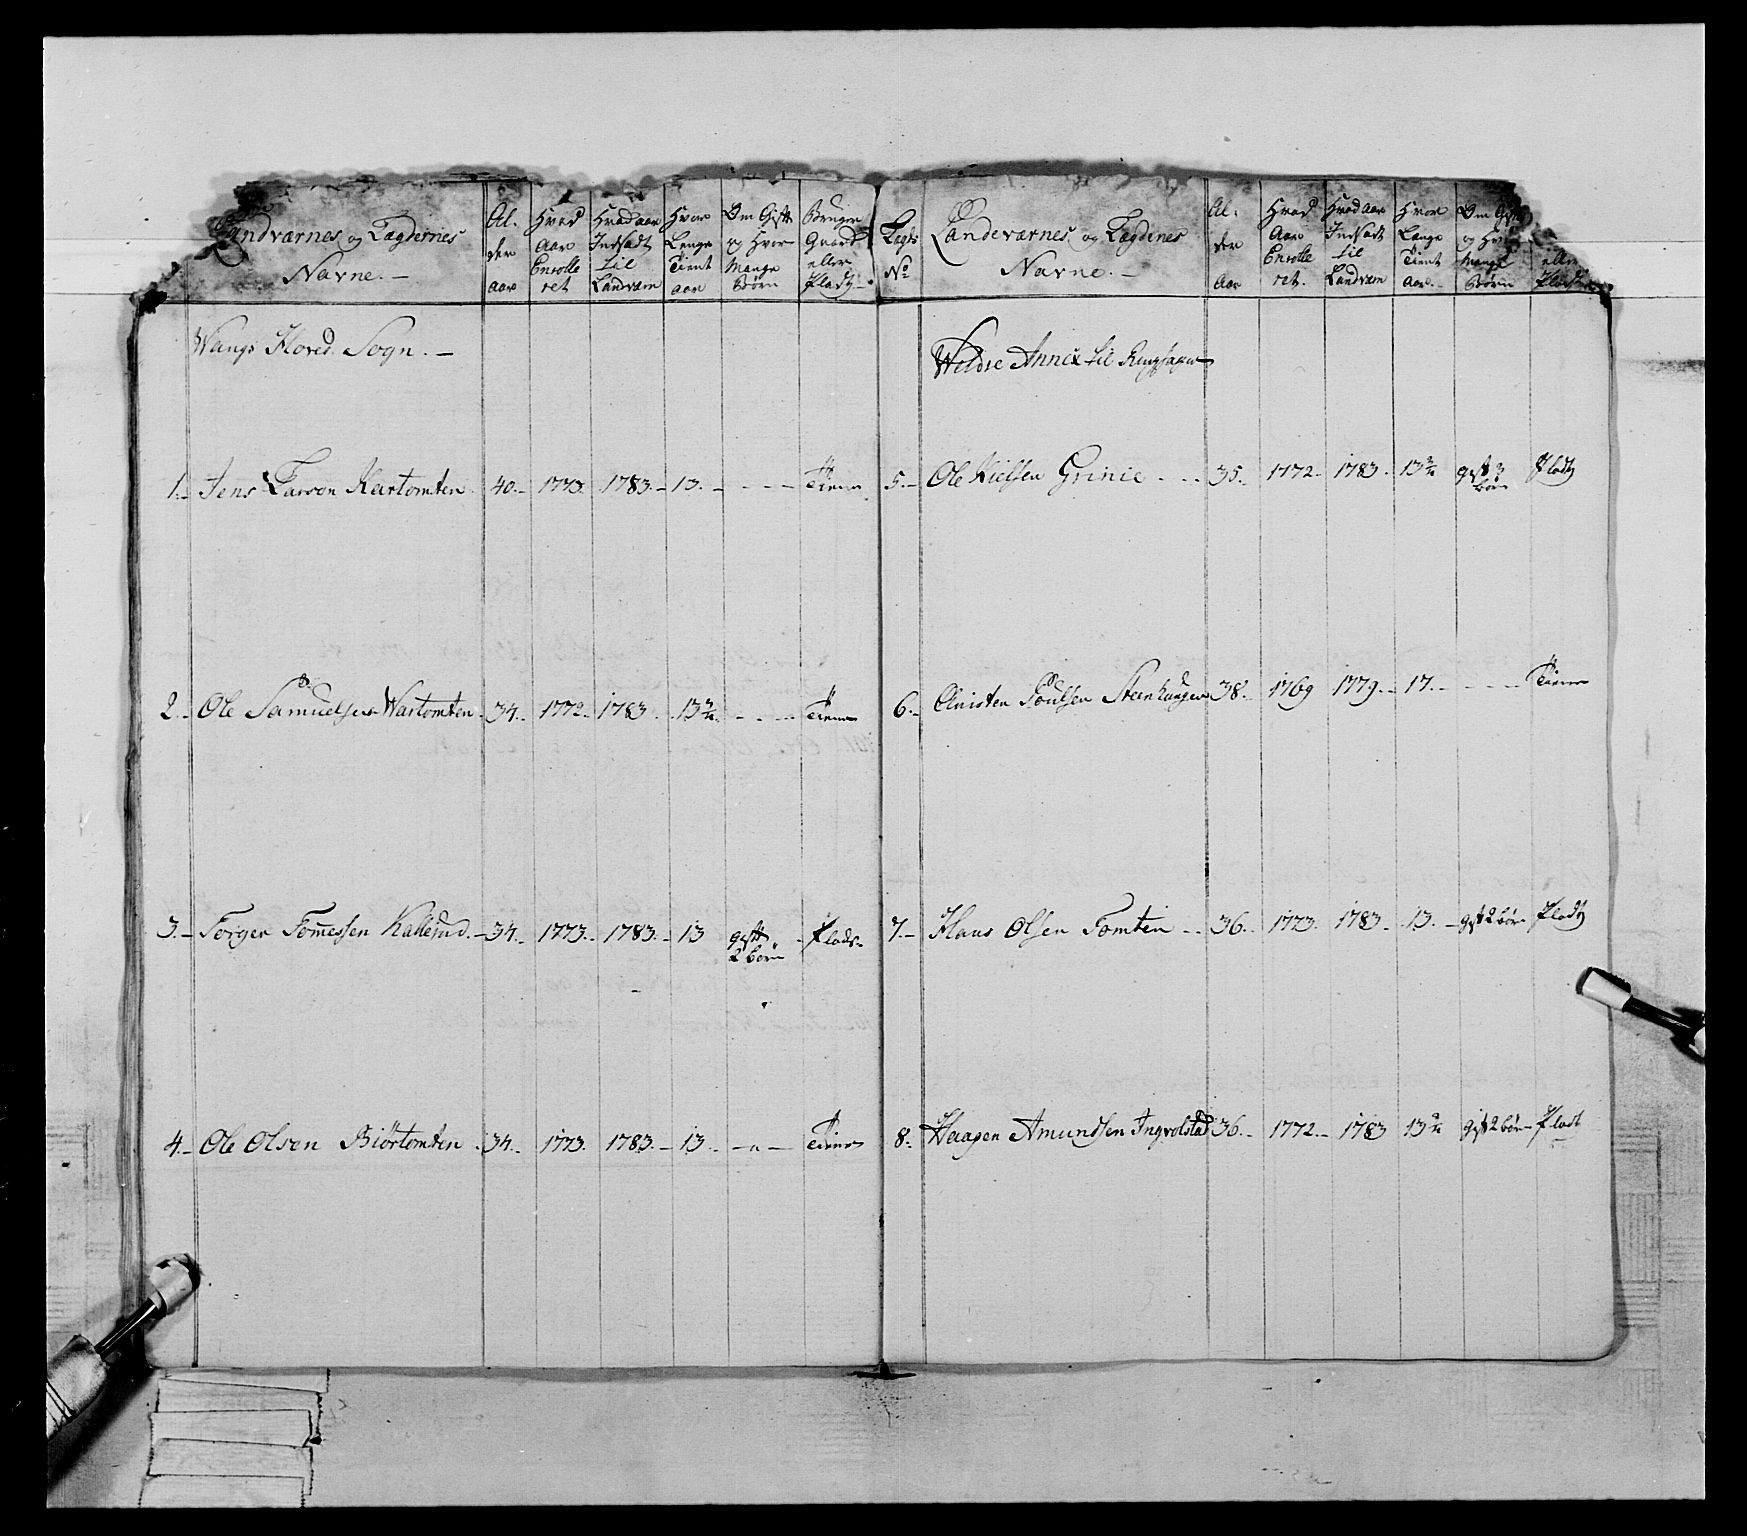 Landværnes og Lægdernes Navne. –
Al- der aar
Hvad Aar Enrolleret
Hvad aar Indsadt til Landværn
Hvor Længe Tient aar
Om Gift og Hvor Mange Börn
Bruger Gaard eller Plads
Wangs Hoved Sogn. –
1. – Jens Larsen Kartomten 40. – 1773. 1783. – 13. – - - - Tiener
2. – Ole Samuelsen Wartomten 34. – 1772. 1783. 13 3/4 - - - Tiener
3. – Torger Tomessen Kallerud. – 34. – 1773. 1783. – 13 gift 2 börn – Plads
4. – Ole Olsen Biörtomten 34. – 1773. 1783. – 13. – " – Tiener
Lægds No
Landeværnes og Lægdenes Navne. –
Al- der Aar
Hvad Aar Enrolleret.
Hvad Aar Indsadt til Landværn
Hvor Længe Tient aar. –
Om Gift og Hvor Mange Börn
eller Plads
Weldre Annex til Ringsager
5. – Ole Nielsen Grinie 35. 1772. 1783. gift 3 börn Plads
6. – Christen Poulsen Steenhaugen 38. 1769 1779. – 17. – - - - Tiener
7. – Hans Olsen Tomten 36. 1773. 1783. 13. – gift 2 börn Plads
8. Haagen Amundsen Ingvolstad 36. – 1772. – 1783 gift 2 börn Plads